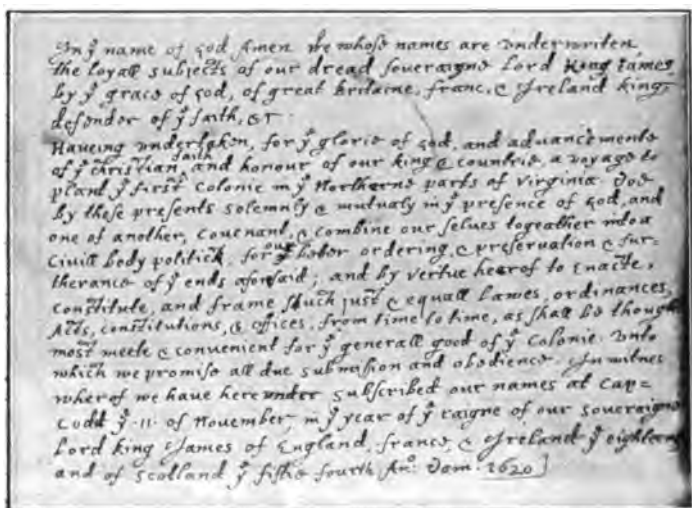 In yͤ name of god Amen. We whose names are underwriten,
the loyall subjects of our dread soveraigne Lord King James,
by yͤ grace of god, of great Britaine, franc, & Ireland king,
defender of yͤ faith, &c.
Haveing undertaken, for yͤ glorie of god, and advancemente
of yͤ christian faith and honour of our king & countrie, a voyage to
plant yͤ first colonie in yͤ Northerne parts of Virginia. Doe
by these presents solemnly & mutualy in yͤ presence of god, and
one of another, covenant, & combine our selves togeather into a
Civill body politick, for our better ordering, & preservation & fur=
therance of yͤ ends aforsaid; and by vertue hearof to Enacte,
constitute, and frame such just & equall Lawes, ordinances,
Acts, constitutions, & offices, from time to time, as shall be thought
most meete & convenient for yͤ generall good of yͤ colonie: unto
which we promise all due submission and obedience. In witnes
wherof we have hereunder subscribed our names at Cap=
Codd yͤ .11. of November, in yͤ year of yͤ raigne of our soveraigne
Lord king James of England, france, & Ireland yͤ eighteenth
and of scotland yͤ fiftie fourth. Anͦ: Dom. 1620